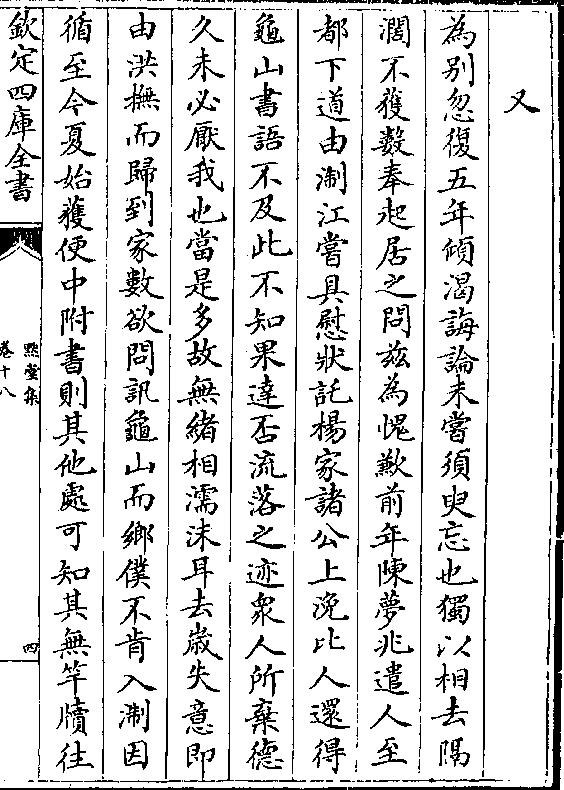 又
為别忽復五年傾渴誨論未嘗須臾忘也獨以相去隔
濶不獲數奉起居之問兹為愧歉前年陳夢兆遣人至
都下道由淛江嘗具慰狀託楊家諸公上浼比人還得
龜山書語不及此不知果達否流落之迹衆人所棄德
久未必厭我也當是多故無緒相濡沫耳去嵗失意即
由洪撫而歸到家數欲問訊龜山而鄉僕不肯入淛因
循至今夏始獲便中附書則其他處可知其無竿牘往
欽定四庫全書
默堂集
卷十八
四